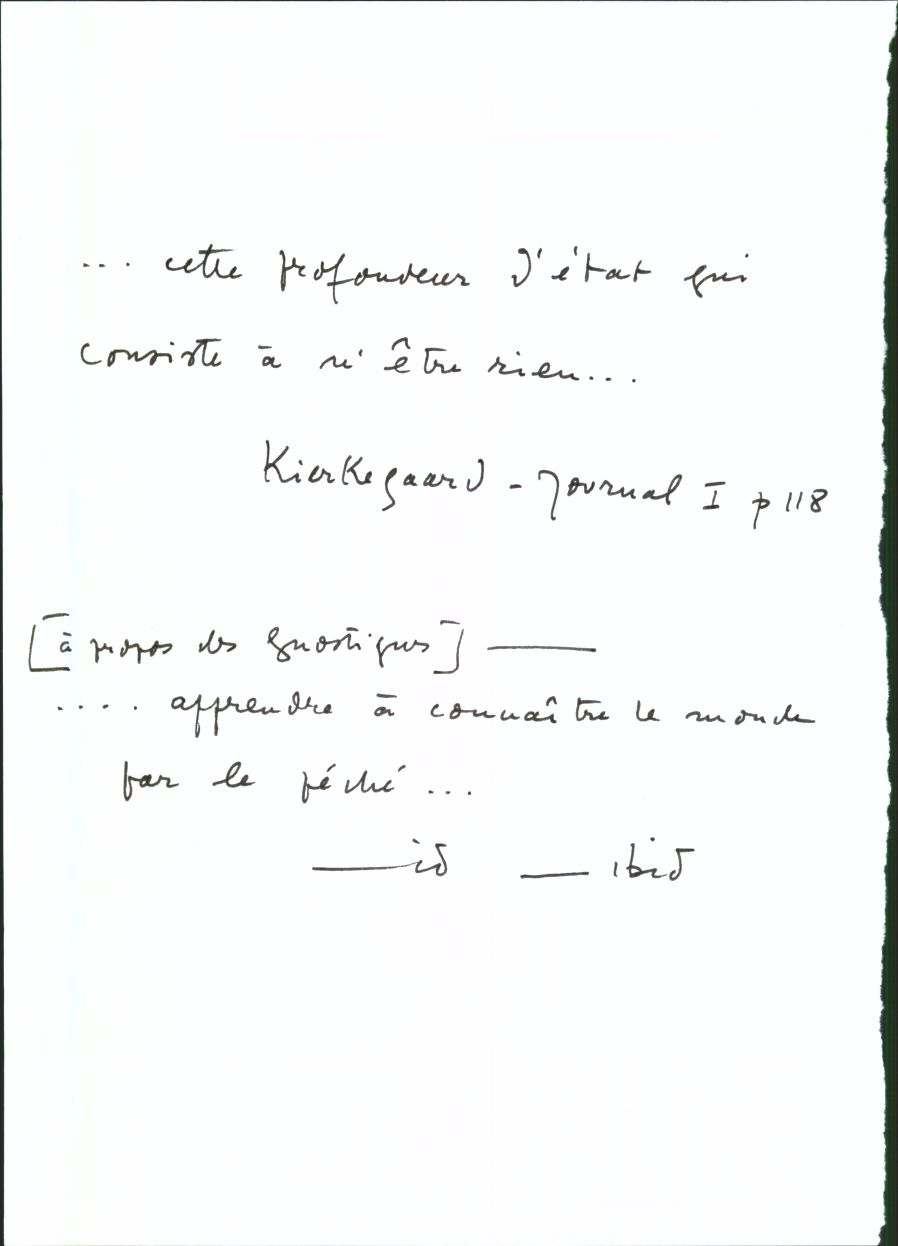 ... cette profondeur d'état qui
consiste à n'être rien...
Kierkegaard - Journal I p 118
[à propos des gnostiques] ———
.... apprendre à connaître le monde
par le péché ...
——— id — ibid